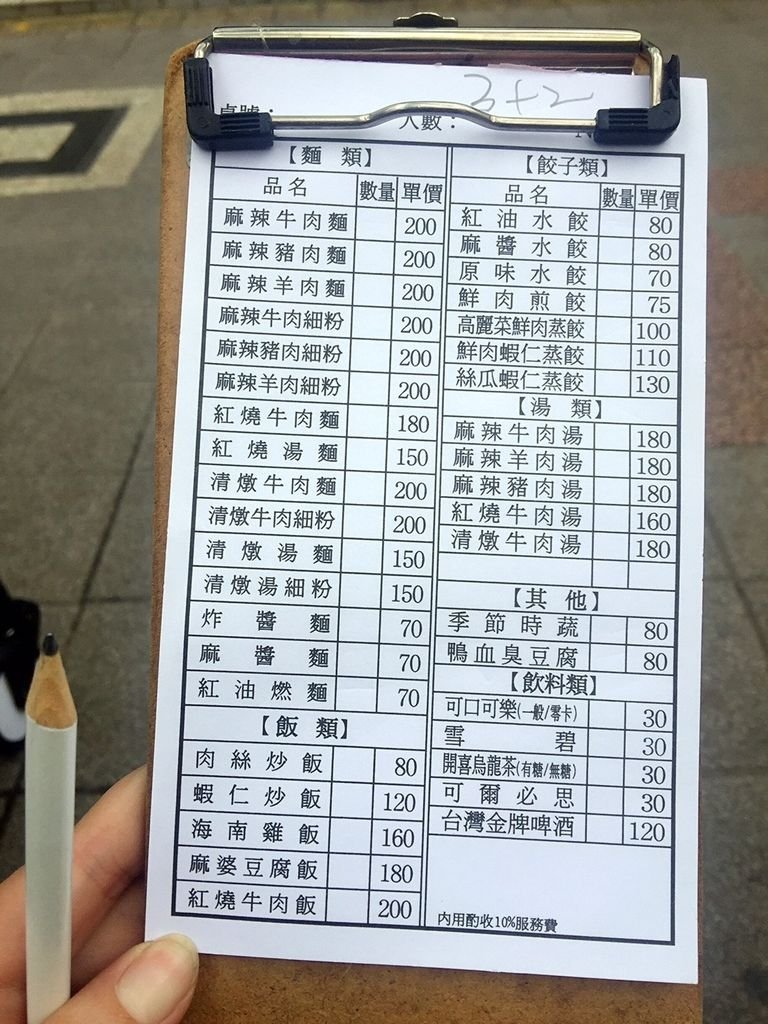 3+2
桌號：
人數：
【麵 類】
品名 數量 單價
麻辣牛肉麵 200
麻辣豬肉麵 200
麻辣羊肉麵 200
麻辣牛肉細粉 200
麻辣豬肉細粉 200
麻辣羊肉細粉 200
紅燒牛肉麵 180
紅燒湯麵 150
清燉牛肉麵 200
清燉牛肉細粉 200
清燉湯麵 150
清燉湯細粉 150
炸醬麵 70
麻醬麵 70
紅油燃麵 70
【飯 類】
肉絲炒飯 80
蝦仁炒飯 120
海南雞飯 160
麻婆豆腐飯 180
紅燒牛肉飯 200
【餃子類】
品名 數量 單價
紅油水餃 80
麻醬水餃 80
原味水餃 70
鮮肉煎餃 75
高麗菜鮮肉蒸餃 100
鮮肉蝦仁蒸餃 110
絲瓜蝦仁蒸餃 130
【湯 類】
麻辣牛肉湯 180
麻辣羊肉湯 180
麻辣豬肉湯 180
紅燒牛肉湯 160
清燉牛肉湯 180
【其 他】
季節時蔬 80
鴨血臭豆腐 80
【飲料類】
可口可樂(一般/零卡) 30
雪碧 30
開喜烏龍茶(有糖/無糖) 30
可爾必思 30
台灣金牌啤酒 120
內用酌收10%服務費